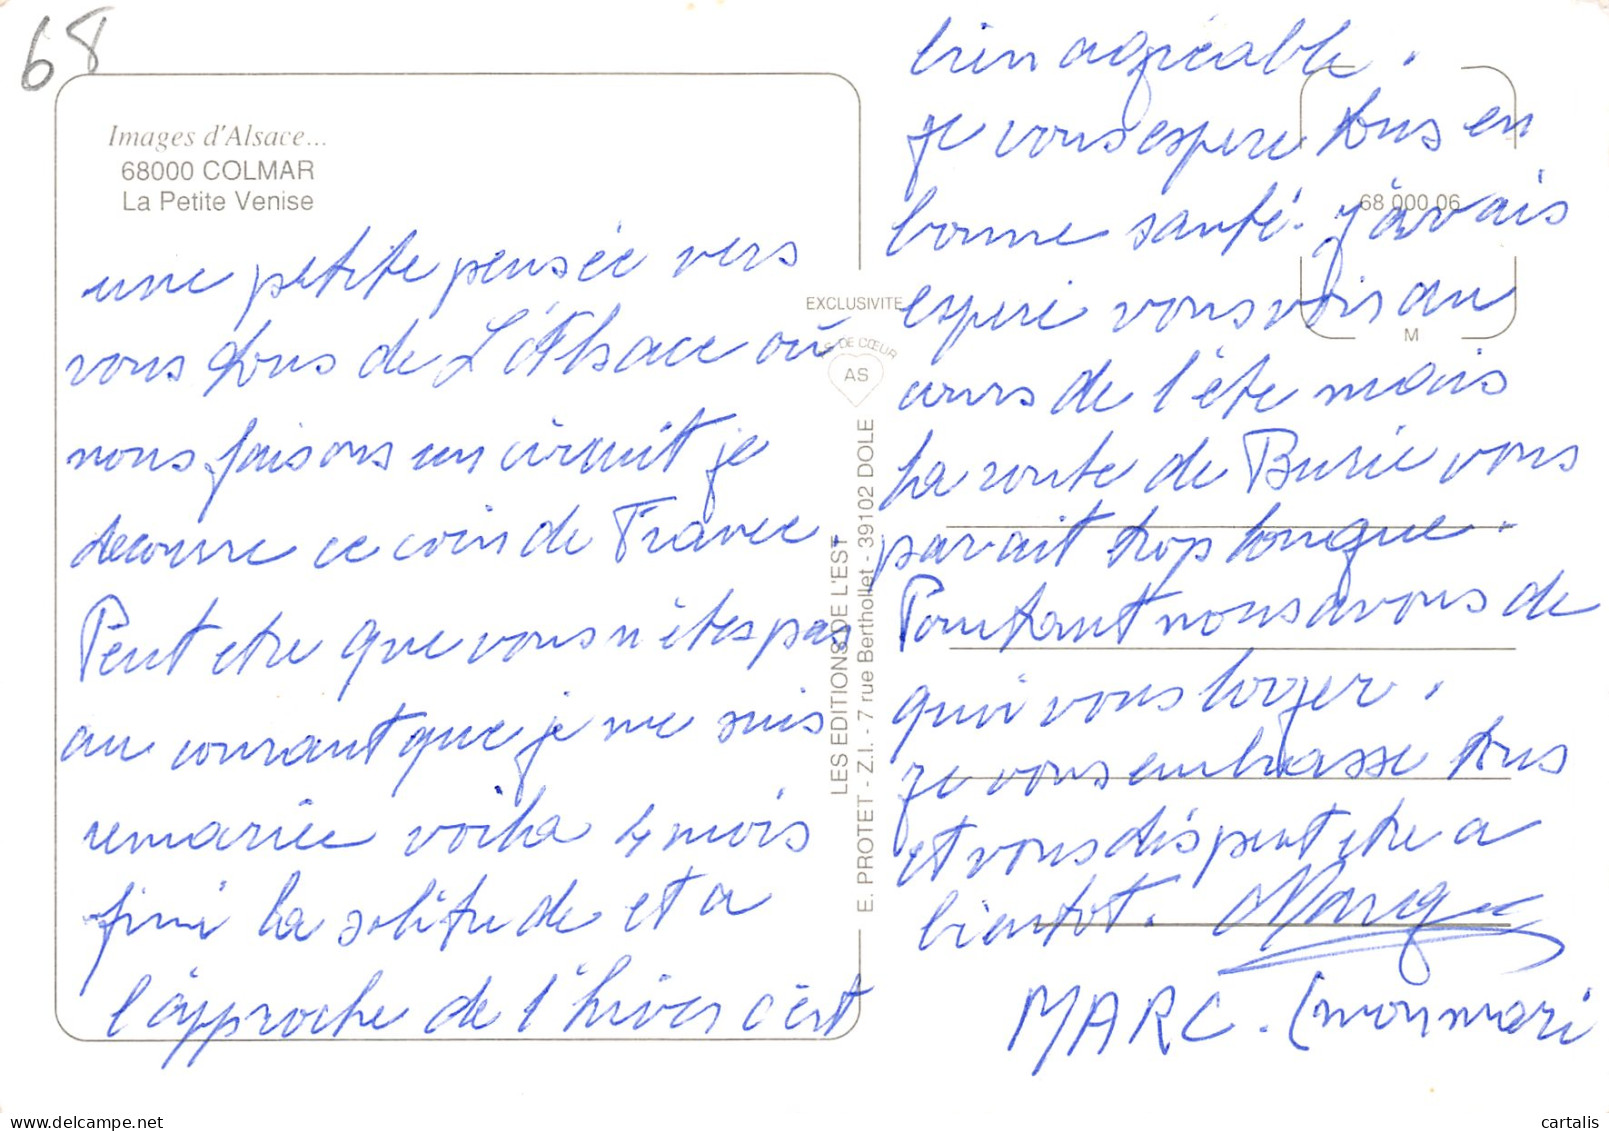 68
Images d'Alsace...
68000 COLMAR
La Petite Venise
une petite pensée vers
vous tous de L'Alsace où
nous faisons un circuit je
decouvre ce coin de France
Peut etre que vous n'êtes pas
au courant que je me suis
remariée voila 4 mois
fini la solitude et a
l'approche de l'hiver c'est
EXCLUSIVITE
AS DE CŒUR
AS
LES EDITIONS DE L'EST
E. PROTET - Z.I. - 7 rue Berthollet - 39102 DOLE
68 000 06
M
bien agréable.
je vous espere tous en
bonne santé. j'avais
esperé vous voir au
cours de l'été mais
la route de Burie vous
parait trop longue.
Pourtant nous avons de
quoi vous loger.
je vous embrasse tous
et vous dis peut etre a
bientot.
MARC. (mon mari
cartalis